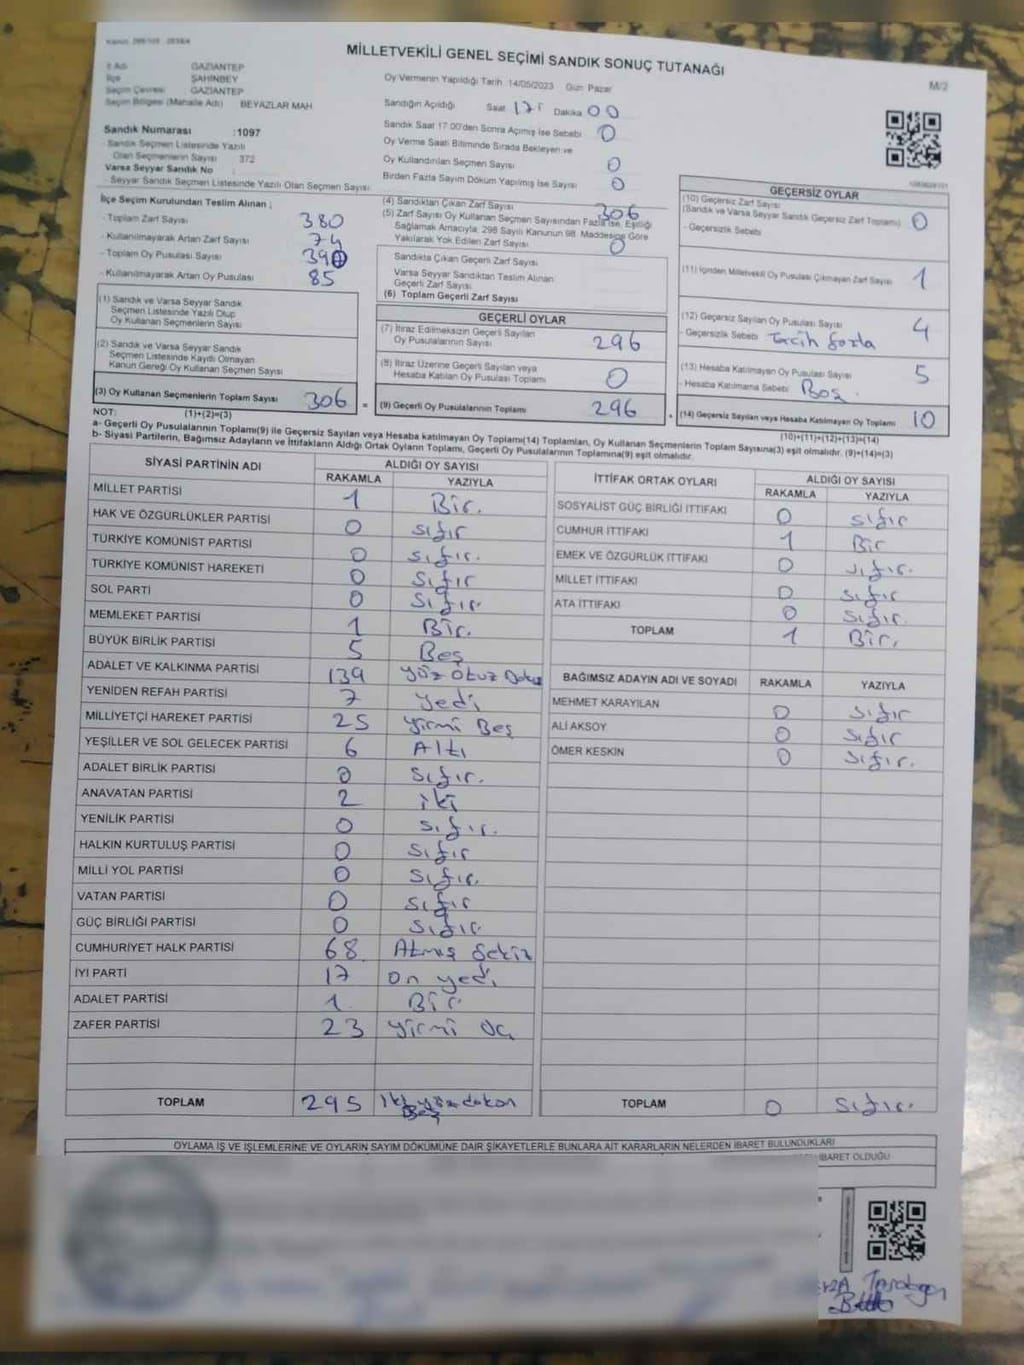 MİLLETVEKİLİ GENEL SEÇİMİ SANDIK SONUÇ TUTANAĞI
M/2
İl Adı GAZİANTEP
İlçe ŞAHİNBEY
Seçim Çevresi : GAZİANTEP
Seçim Bölgesi (Mahalle Adı) BEYAZLAR MAH
Sandık Numarası :1097
- Sandık Seçmen Listesinde Yazılı
Olan Seçmenlerin Sayısı 372
Varsa Seyyar Sandık No :
- Seyyar Sandık Seçmen Listesinde Yazılı Olan Seçmen Sayısı
Oy Vermenin Yapıldığı Tarih : 14/05/2023 Gün: Pazar
Sandığın Açıldığı Saat 17: Dakika 00
Sandık Saat 17:00'den Sonra Açılmış İse Sebebi 0
Oy Verme Saati Bitiminde Sırada Bekleyen ve
Oy Kullandırılan Seçmen Sayısı 0
Birden Fazla Sayım Döküm Yapılmış İse Sayısı 0
İlçe Seçim Kurulundan Teslim Alınan ;
- Toplam Zarf Sayısı 380
- Kullanılmayarak Artan Zarf Sayısı 74
- Toplam Oy Pusulası Sayısı
- Kullanılmayarak Artan Oy Pusulası 85
(1) Sandık ve Varsa Seyyar Sandık
Seçmen Listesinde Yazılı Olup
Oy Kullanan Seçmenlerin Sayısı
(2) Sandık ve Varsa Seyyar Sandık
Seçmen Listesinde Kayıtlı Olmayan
Kanun Gereği Oy Kullanan Seçmen Sayısı
(3) Oy Kullanan Seçmenlerin Toplam Sayısı 306 =
(4) Sandıktan Çıkan Zarf Sayısı 306
(5) Zarf Sayısı Oy Kullanan Seçmen Sayısından Fazla ise, Eşitliği
Sağlamak Amacıyla, 298 Sayılı Kanunun 98. Maddesine Göre
Yakılarak Yok Edilen Zarf Sayısı 0
Sandıkta Çıkan Geçerli Zarf Sayısı
Varsa Seyyar Sandıktan Teslim Alınan
Geçerli Zarf Sayısı
(6) Toplam Geçerli Zarf Sayısı
GEÇERLİ OYLAR
(7) İtiraz Edilmeksizin Geçerli Sayılan
Oy Pusulalarının Sayısı 296
(8) İtiraz Üzerine Geçerli Sayılan veya
Hesaba Katılan Oy Pusulası Toplamı 0
(9) Geçerli Oy Pusulalarının Toplamı 296
GEÇERSİZ OYLAR
(10) Geçersiz Zarf Sayısı
(Sandık ve Varsa Seyyar Sandık Geçersiz Zarf Toplamı) 0
- Geçersizlik Sebebi
(11) İçinden Milletvekili Oy Pusulası Çıkmayan Zarf Sayısı 1
(12) Geçersiz Sayılan Oy Pusulası Sayısı 4
- Geçersizlik Sebebi Tercih fazla
(13) Hesaba Katılmayan Oy Pusulası Sayısı 5
- Hesaba Katılmama Sebebi Boş.
(14) Geçersiz Sayılan veya Hesaba Katılmayan Oy Toplamı 10
NOT: (1)+(2)=(3) (10)+(11)+(12)+(13)=(14)
a- Geçerli Oy Pusulalarının Toplamı(9) ile Geçersiz Sayılan veya Hesaba katılmayan Oy Toplamı(14) Toplamları, Oy Kullanan Seçmenlerin Toplam Sayısına(3) eşit olmalıdır. (9)+(14)=(3)
b- Siyasi Partilerin, Bağımsız Adayların ve İttifakların Aldığı Ortak Oyların Toplamı, Geçerli Oy Pusulalarının Toplamına(9) eşit olmalıdır.
SİYASİ PARTİNİN ADI ALDIĞI OY SAYISI
RAKAMLA YAZIYLA
MİLLET PARTİSİ 1 Bir.
HAK VE ÖZGÜRLÜKLER PARTİSİ 0 sıfır
TÜRKİYE KOMÜNİST PARTİSİ 0 sıfır.
TÜRKİYE KOMÜNİST HAREKETİ 0 sıfır
SOL PARTİ 0 sıfır
MEMLEKET PARTİSİ 1 Bir.
BÜYÜK BİRLİK PARTİSİ 5 Beş
ADALET VE KALKINMA PARTİSİ 139 yüz otuz Dokuz
YENİDEN REFAH PARTİSİ 7 yedi
MİLLİYETÇİ HAREKET PARTİSİ 25 yirmi Beş
YEŞİLLER VE SOL GELECEK PARTİSİ 6 Altı
ADALET BİRLİK PARTİSİ 0 sıfır.
ANAVATAN PARTİSİ 2 iki
YENİLİK PARTİSİ 0 sıfır.
HALKIN KURTULUŞ PARTİSİ 0 sıfır
MİLLİ YOL PARTİSİ 0 sıfır.
VATAN PARTİSİ 0 sıfır
GÜÇ BİRLİĞİ PARTİSİ 0 sıfır
CUMHURİYET HALK PARTİSİ 68 Atmış Sekiz
İYİ PARTİ 17 on yedi
ADALET PARTİSİ 1 Bir
ZAFER PARTİSİ 23 yirmi üç
TOPLAM 295 İki yüz doksan
Beş
İTTİFAK ORTAK OYLARI ALDIĞI OY SAYISI
RAKAMLA YAZIYLA
SOSYALİST GÜÇ BİRLİĞİ İTTİFAKI 0 sıfır
CUMHUR İTTİFAKI 1 Bir
EMEK VE ÖZGÜRLÜK İTTİFAKI 0 sıfır.
MİLLET İTTİFAKI 0 sıfır
ATA İTTİFAKI 0 sıfır.
TOPLAM 1 Bir.
BAĞIMSIZ ADAYIN ADI VE SOYADI RAKAMLA YAZIYLA
MEHMET KARAYILAN 0 sıfır
ALİ AKSOY 0 sıfır
ÖMER KESKİN 0 sıfır.
TOPLAM 0 sıfır.
OYLAMA İŞ VE İŞLEMLERİNE VE OYLARIN SAYIM DÖKÜMÜNE DAİR ŞİKAYETLERLE BUNLARA AİT KARARLARIN NELERDEN İBARET BULUNDUKLARI
İBARET OLDUĞU